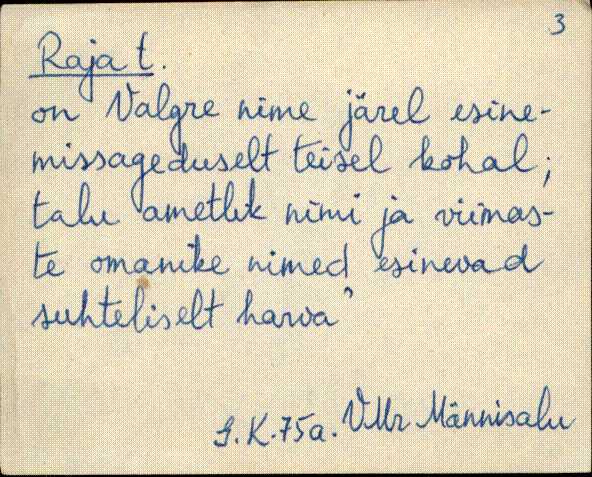 3
Raja t.
on Valgre nime järel esine-
missageduselt teisel kohal;
talu ametlik nimi ja viimas-
te omanike nimed esinevad
suhteliselt harva"
J. K. 75a. VMr Männisalu